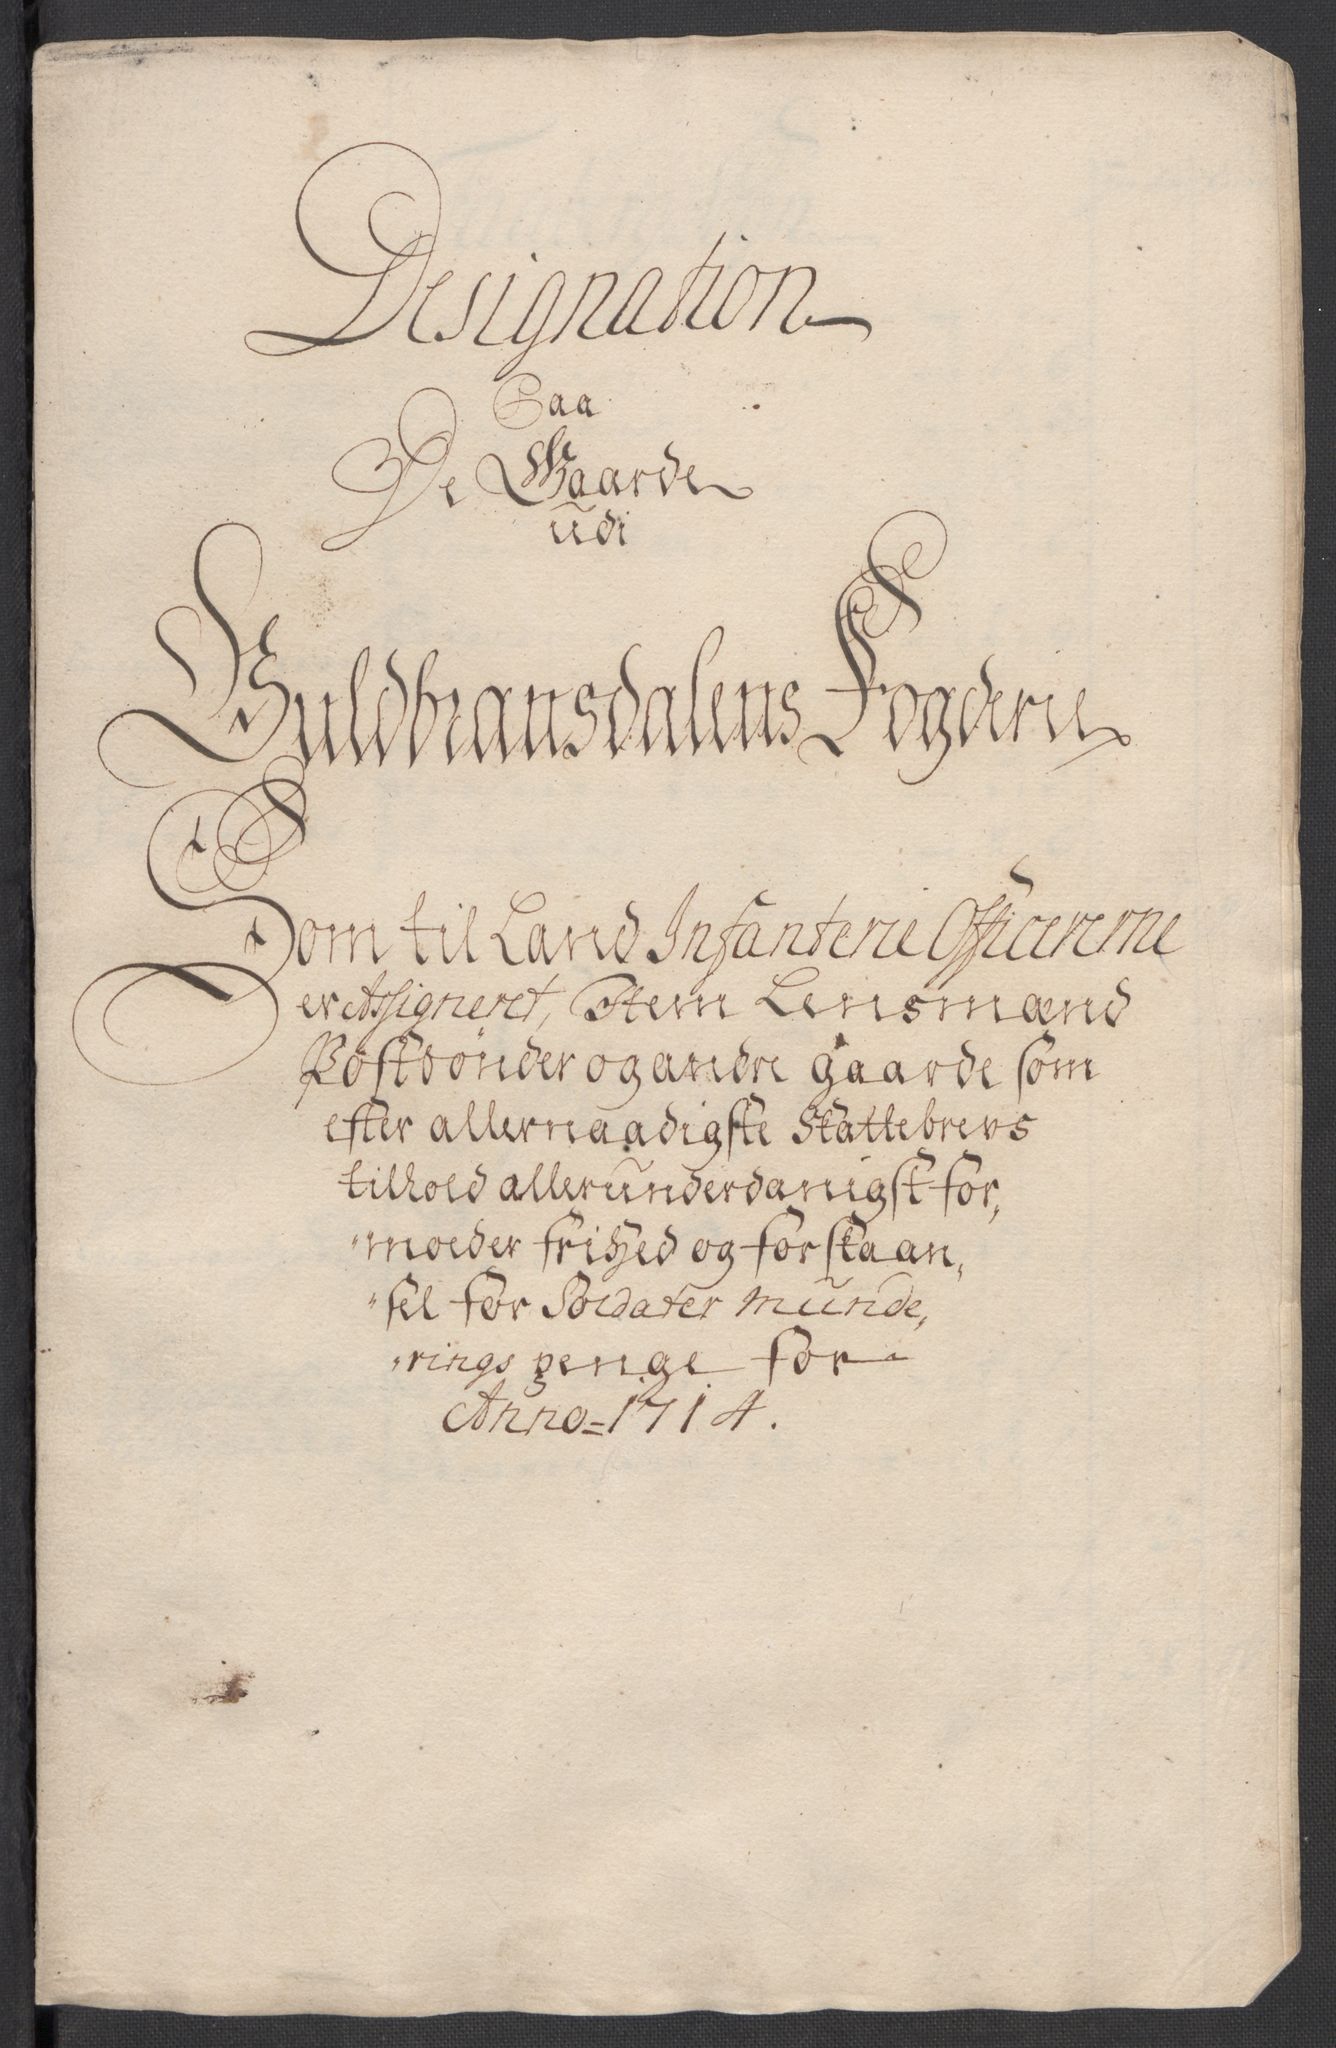 Designation
Paa
De Gaarde
udi
Guldbransdalens Fogderie
Som til Land Infanterie Officererne
er Assigneret, Item Lensmænd
Postbønder og andre gaarde som
efter allernaadigste Skattebrevs
tilhold allerunderdanigst for,
"moeder frihed og forskaan,
"sel for Soldater Munde,
"rings penge for
Anno = 1714.